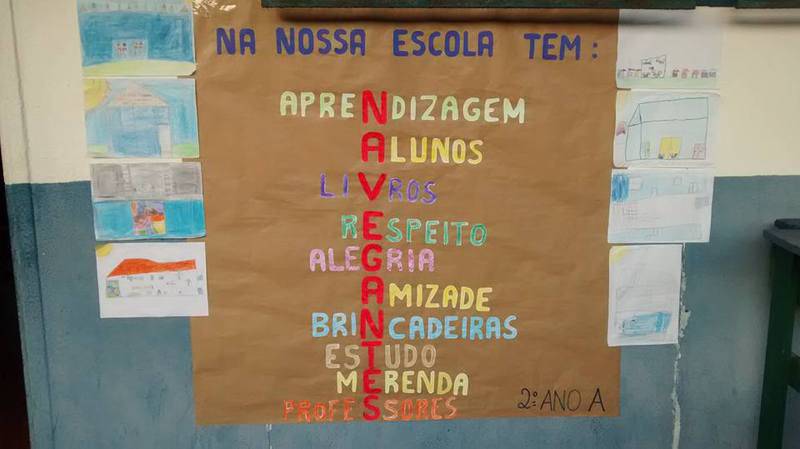 NA NOSSA ESCOLA TEM:
APRENDIZAGEM
ALUNOS
LIVROS
RESPEITO
ALEGRIA
AMIZADE
BRINCADEIRAS
ESTUDO
MERENDA
PROFESSORES
2º ANO A